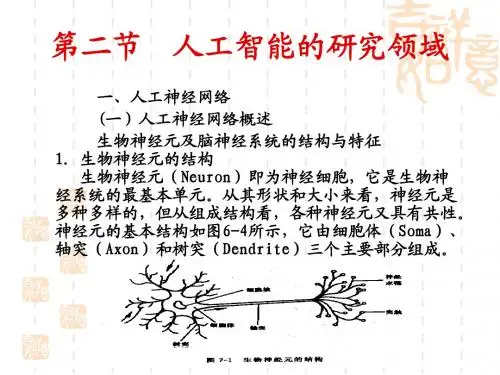 第二节 人工智能的研究领域
一、人工神经网络
(一)人工神经网络概述
生物神经元及脑神经系统的结构与特征
1. 生物神经元的结构
生物神经元(Neuron)即为神经细胞，它是生物神
经系统的最基本单元。从其形状和大小来看，神经元是
多种多样的，但从组成结构看，各种神经元又具有共性。
神经元的基本结构如图6-4所示，它由细胞体(Soma)、
轴突(Axon)和树突(Dendrite)三个主要部分组成。
神经
末梢
细胞核
突触
细胞体
轴突
树突
图 7-1 生物神经元的结构